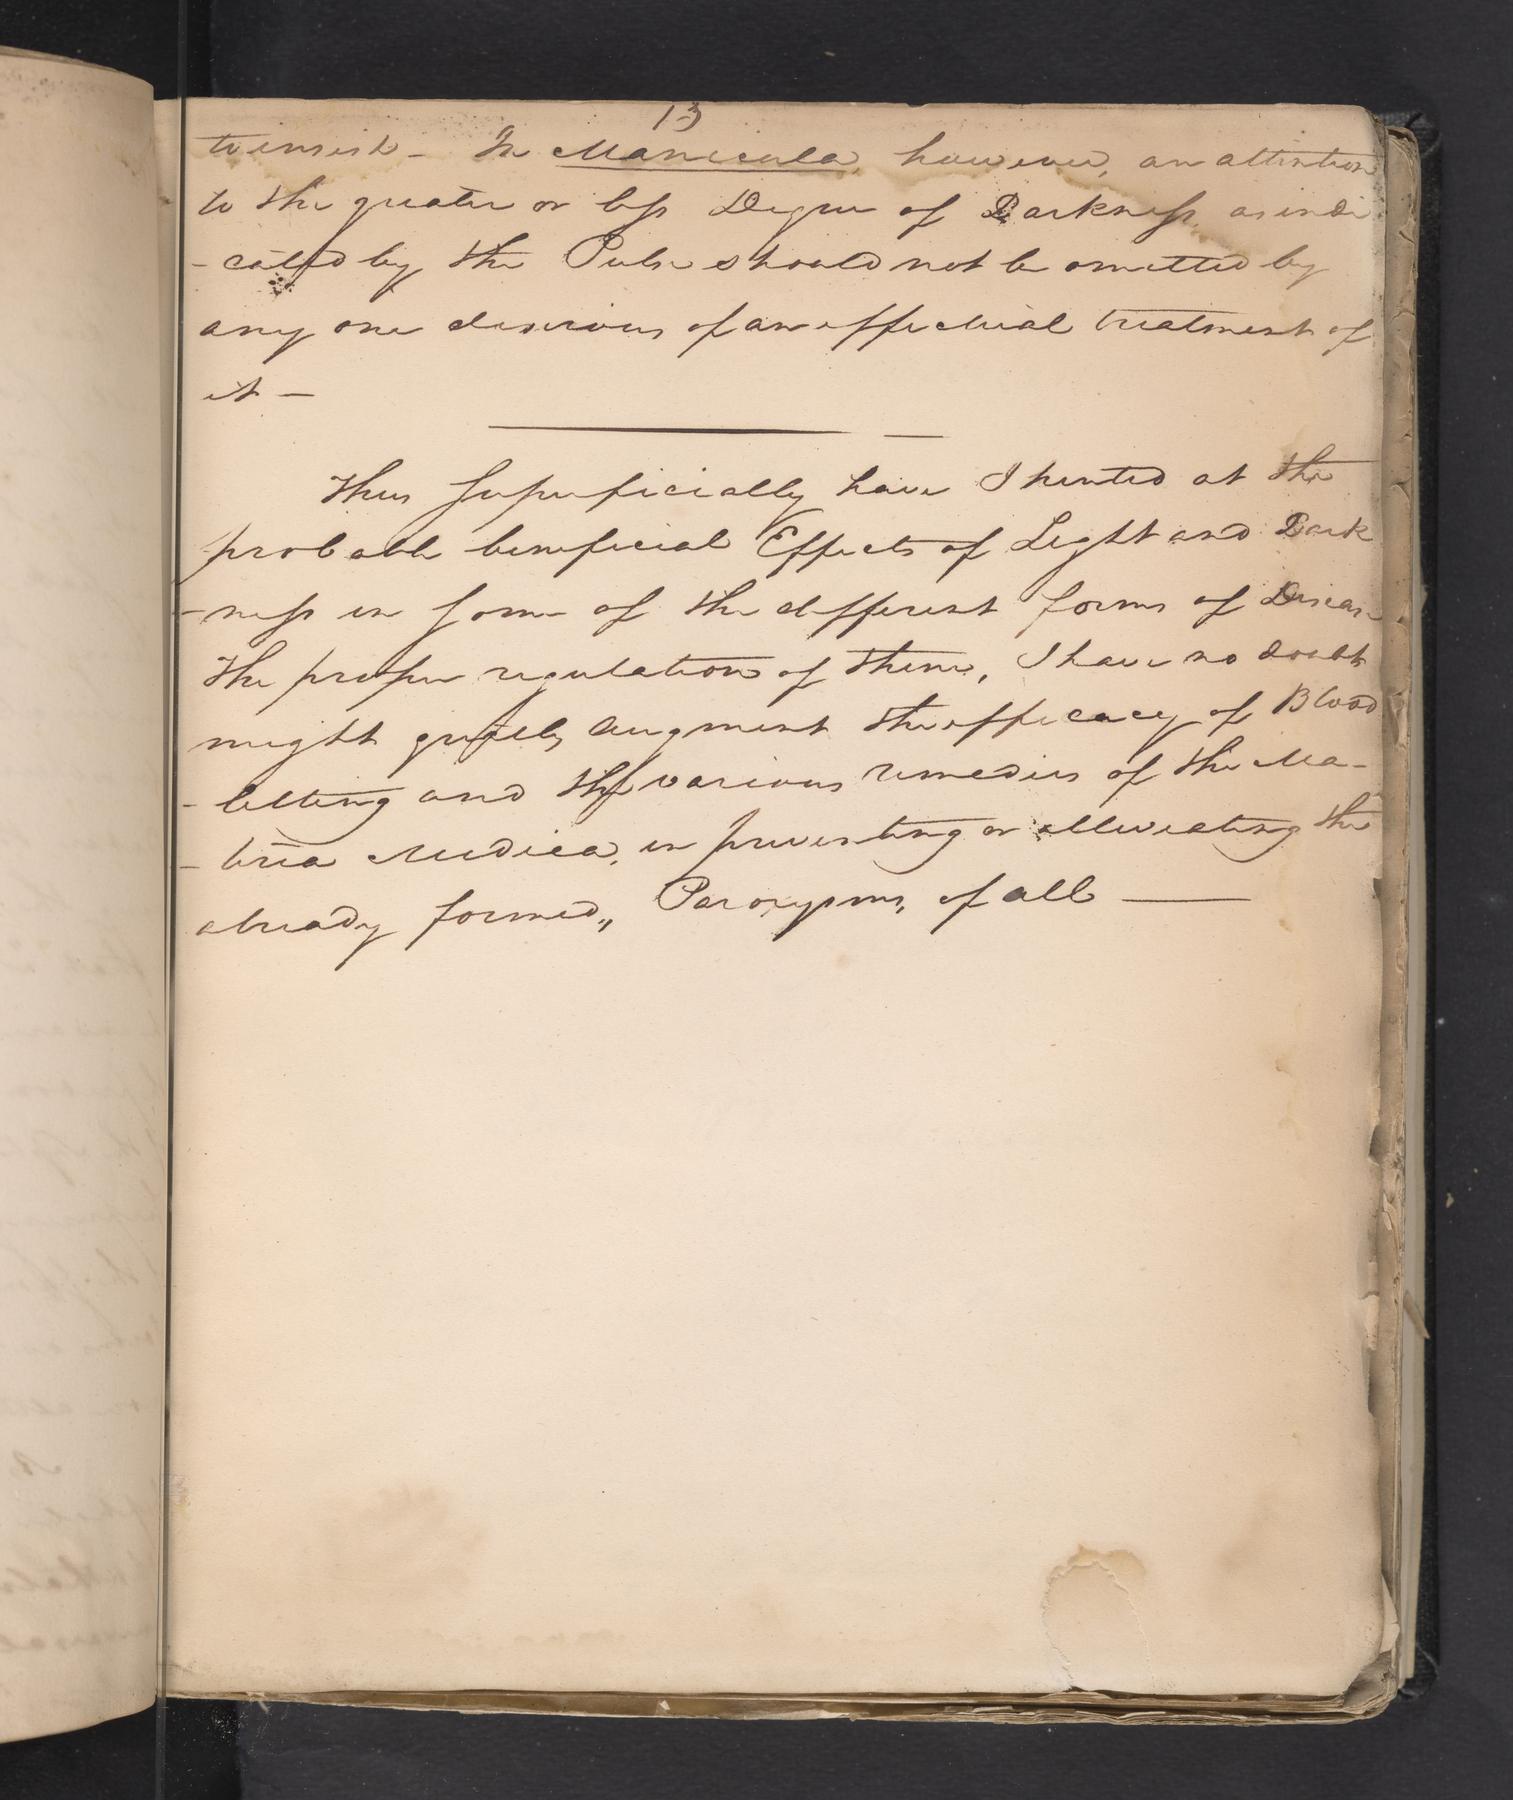 13
to insist - In Manicula, however, an attention
to the greater or less Degree of Darkness, as indi
- cated by the Pulse should not be omitted by
any one desirous of an effectual treatment of
it -
Thus superficially have I hinted at the
probable beneficial Effects of Light and Dark
- ness in some of the different forms of Disease
the proper regulation of them, I have no doubt
might greatly augment the efficacy of Blood
- letting and the various remedies of the Ma-
- teria Medica, in preventing or alleviating the
already formed,, Paroxysms, of all -